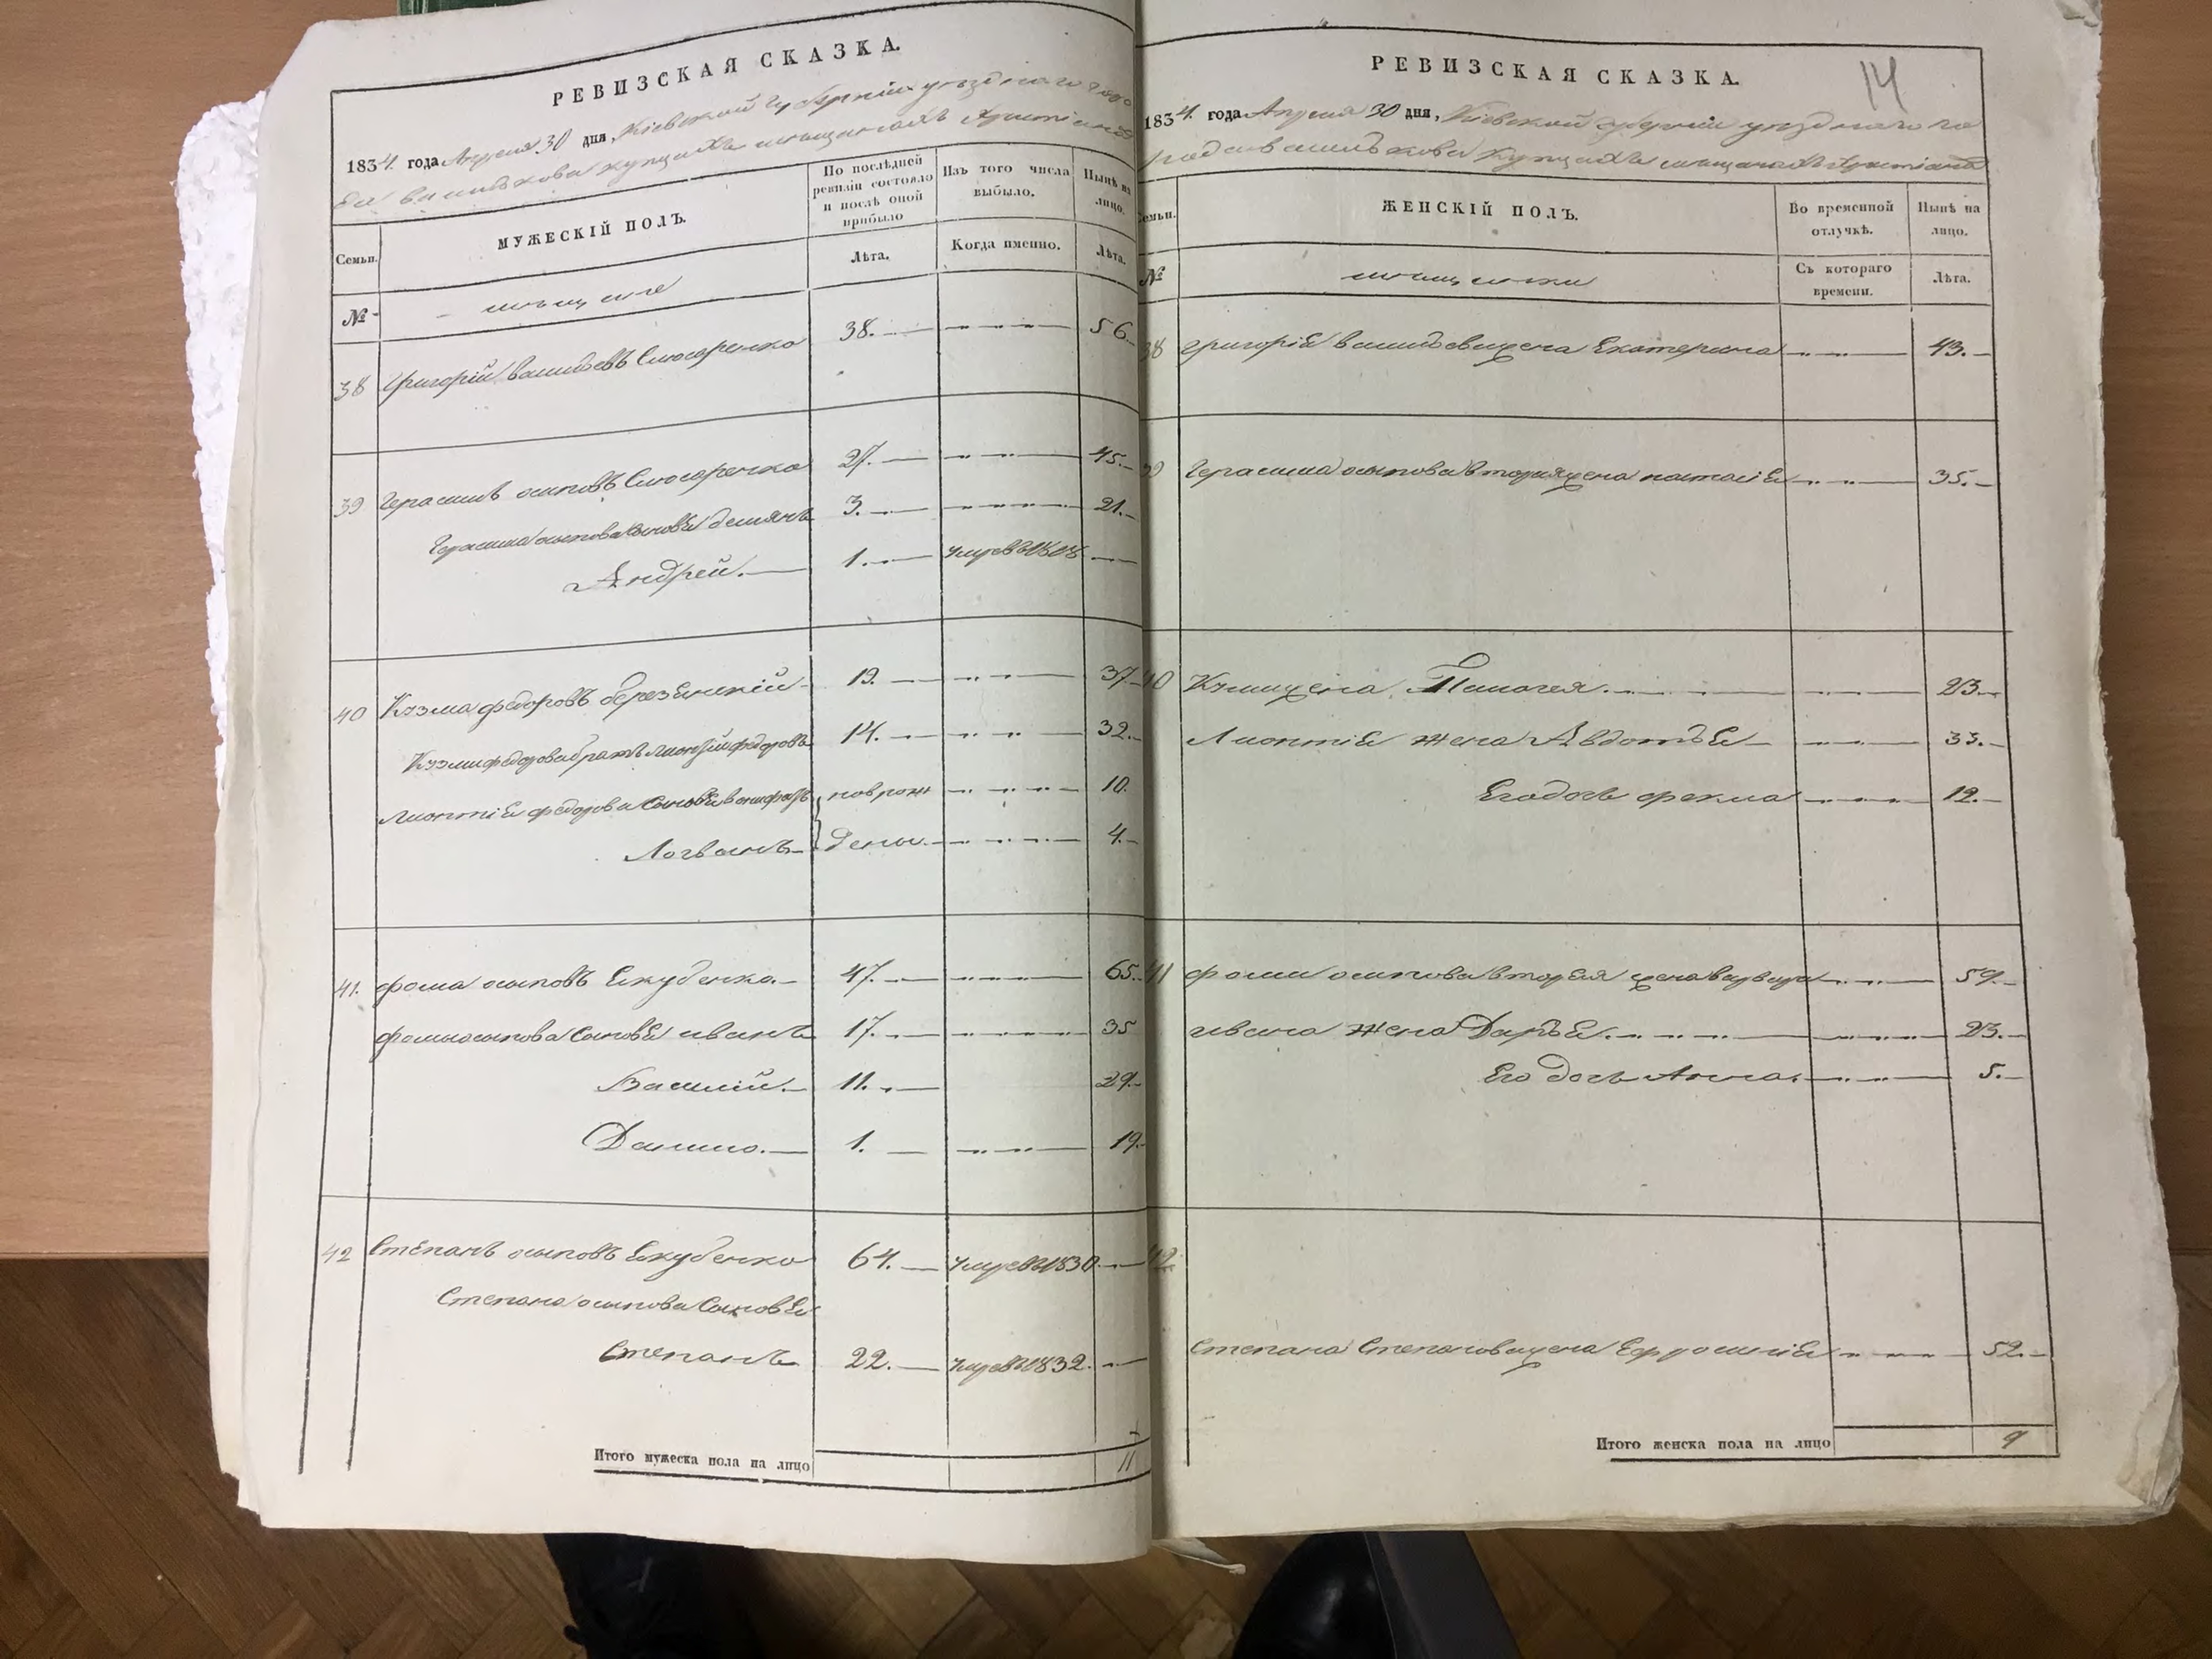 РЕВИЗСКАЯ СКАЗКА.
1834. года Апреля 30 дня, Кіевской губерніи уезднаго горо
да василькова купцахъ мещанахъ христіанахъ
Семьи.
МУЖЕСКІЙ ПОЛЪ.
По послѣдней ревизіи состояло и послѣ оной прибыло
Изъ того числа выбыло.
Нынѣ на лицо.
Лѣта.
Когда именно.
Лѣта.
№
мещане
38 Григорій васильевъ Слюсаренко 38. 56.
39 Герасимъ осиповъ Слюсаренко 27. 45.
Герасима осипова сыновья демянъ 3. 21.
Андрей. 1. умре въ 18
40 Кузма федоровъ березянскій 19. 37
Кузмы федорова братъ федоровъ 14. 32.
федорова Сыновья новорож 10.
Логвинъ денны. 4.
41. фома осиповъ Якубенко. 47. 65.
фомы осипова Сыновья иванъ 17. 35
Василій. 11. 29.
Данило. 1. 19.
42 Степанъ осиповъ Якубенко 64. умре въ 1830
Степана осипова Сыновья
Степанъ 22. умре въ 1832.
Итого мужеска пола на лицо 11
РЕВИЗСКАЯ СКАЗКА.
14
1834. года Апреля 30 дня, Кіевской губерніи уезднаго го
рода василькова купцахъ мещанахъ христіанахъ
Семьи.
ЖЕНСКІЙ ПОЛЪ.
Во временной отлучкѣ.
Нынѣ на лицо.
№
мещанки
Съ котораго времени.
Лѣта.
38 Григорія васильева жена Екатерина 43.
39 Герасима осипова вторая жена настасія 35.
40 Кузмы жена 23.
жена Авдотья 33.
Его дочь фекла 12.
41 фомы осипова вторая жена 59.
ивана жена Дарья. 23.
Его дочь Анна. 5.
42
Степана Степанова жена Ефросинія 52.
Итого женска пола на лицо 9